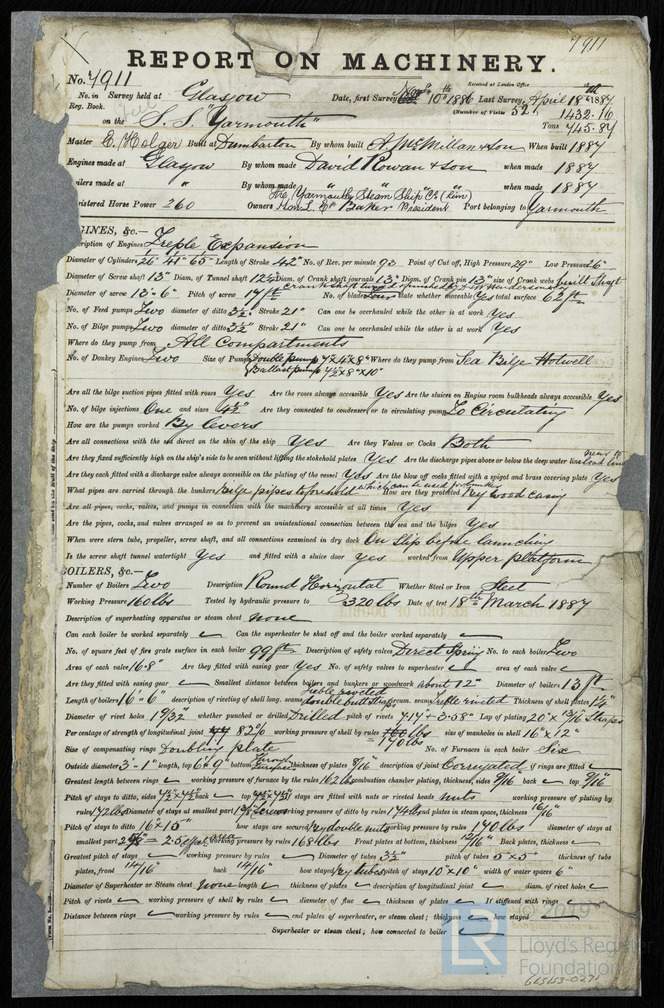 7911
REPORT ON MACHINERY.
No. 7911
Received at London Office
No. in Survey held at Glasgow Date, first Survey Nov 10th 1886 Last Survey, April 18th 1887
Reg. Book. (Number of Visits 52)
on the S.S. "Yarmouth" Tons 1432.16 745.84
Master E. Holger Built at Dumbarton By whom built A. McMillan & Son When built 1887
Engines made at Glasgow By whom made David Rowan & Son when made 1887
Boilers made at " By whom made " when made 1887
Registered Horse Power 260 Owners The Yarmouth Steam Ship Co (Lim) Hon. L. E. Baker President Port belonging to Yarmouth
ENGINES, &c.—
Description of Engines Treple Expansion
Diameter of Cylinders 26" 41" 65" Length of Stroke 42" No. of Rev. per minute 90 Point of Cut off, High Pressure 29" Low Pressure 26"
Diameter of Screw shaft 13" Diam. of Tunnel shaft 12 Diam. of Crank shaft journals 13" Diam. of Crank pin 13" size of Crank webs built Shaft
Diameter of screw 13-6" Pitch of screw 17 ft No. of blades Four state whether moveable Yes total surface 62 ft
No. of Feed pumps Two diameter of ditto 3½" Stroke 21" Can one be overhauled while the other is at work Yes
No. of Bilge pumps Two diameter of ditto 3½" Stroke 21" Can one be overhauled while the other is at work Yes
Where do they pump from All Compartments
No. of Donkey Engines Two Size of Pumps Double pump 7"x4"x8" Where do they pump from Sea Bilge Hotwell
Ballast pump 7½"x8"x10"
Are all the bilge suction pipes fitted with roses Yes Are the roses always accessible Yes Are the sluices on Engine room bulkheads always accessible Yes
No. of bilge injections One and sizes 4½" Are they connected to condenser, or to circulating pump To Circulating
How are the pumps worked By levers
Are all connections with the sea direct on the skin of the ship Yes Are they Valves or Cocks Both
Are they fixed sufficiently high on the ship's side to be seen without lifting the stokehold plates Yes Are the discharge pipes above or below the deep water line near to load line
Are they each fitted with a discharge valve always accessible on the plating of the vessel Yes Are the blow off cocks fitted with a spigot and brass covering plate Yes
What pipes are carried through the bunkers Bilge pipes to forehold which can be used for bunker How are they protected By wood casing
Are all pipes, cocks, valves, and pumps in connection with the machinery accessible at all times Yes
Are the pipes, cocks, and valves arranged so as to prevent an unintentional connection between the sea and the bilges Yes
When were stern tube, propeller, screw shaft, and all connections examined in dry dock On Slip before launching
Is the screw shaft tunnel watertight Yes and fitted with a sluice door Yes worked from Upper platform
BOILERS, &c.—
Number of Boilers Two Description Round Horizontal Whether Steel or Iron Steel
Working Pressure 160 lbs Tested by hydraulic pressure to 320 lbs Date of test 18th March 1887
Description of superheating apparatus or steam chest none
Can each boiler be worked separately Can the superheater be shut off and the boiler worked separately
No. of square feet of fire grate surface in each boiler 99 ft Description of safety valves Direct Spring No. to each boiler Two
Area of each valve 16.8" Are they fitted with easing gear Yes No. of safety valves to superheater area of each valve
Are they fitted with easing gear Smallest distance between boilers and bunkers or woodwork about 12" Diameter of boilers 13 ft
Length of boilers 16'6" description of riveting of shell long. seams Treble riveted double butt straps circum. seams Treble riveted Thickness of shell plates 1¼"
Diameter of rivet holes 1 9/32" whether punched or drilled Drilled pitch of rivets Lap of plating
Per centage of strength of longitudinal joint 82% working pressure of shell by rules 170 lbs size of manholes in shell 16" x 12"
Size of compensating rings Doubling plate No. of Furnaces in each boiler Six
Outside diameter 3'-1" length, top 6'9" bottom through furnaces thickness of plates description of joint Corrugated if rings are fitted
Greatest length between rings working pressure of furnace by the rules 162 lbs combustion chamber plating, thickness, sides 9/16" back top 9/16"
Pitch of stays to ditto, sides 7½"x7½" back top If stays are fitted with nuts or riveted heads nuts working pressure of plating by
rules 172 lbs Diameter of stays at smallest part working pressure of ditto by rules 174 lbs end plates in steam space, thickness
Pitch of stays to ditto 16"x15" how stays are secured By double nuts working pressure by rules 170 lbs diameter of stays at
smallest part working pressure by rules 168 lbs Front plates at bottom, thickness Back plates, thickness
Greatest pitch of stays working pressure by rules Diameter of tubes 3½" pitch of tubes 5"x5" thickness of tube
plates, front back how stayed By tubes pitch of stays 10"x10" width of water spaces 6"
Diameter of Superheater or Steam chest none length thickness of plates description of longitudinal joint diam. of rivet holes
Pitch of rivets working pressure of shell by rules diameter of flue thickness of plates If stiffened with rings
Distance between rings working pressure by rules end plates of superheater, or steam chest; thickness how stayed
Superheater or steam chest; how connected to boiler
© 2019
LR
Lloyd's Register
Foundation